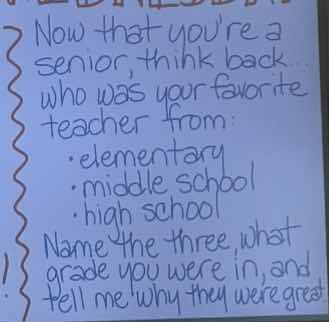 Now that you're a
senior, think back...
who was your favorite
teacher from:
• elementary
• middle school
• high school
Name the three, what
grade you were in, and
tell me why they were great